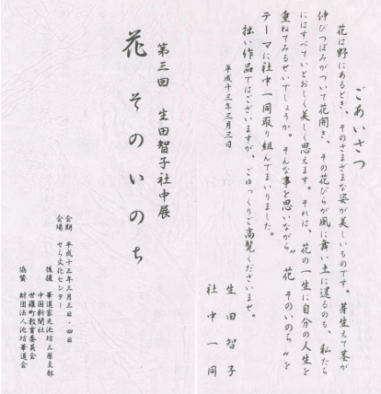 ごあいさつ
花は野にあるとき、そのさまざまな姿が美しいものです。芽生えて茎が
伸びつぼみがついて花開き、その花びらが風に舞い土に還るのも、私たち
にはすべていとおしく美しく思えます。それは、花の一生に自分の人生を
重ねてみるせいでしょうか。そんな事を思いながら“花 そのいのち”を
テーマに社中一同取り組んでまいりました。
拙い作品ではございますが、ごゆっくりご高覧くださいませ。
平成十三年三月三日
生田智子
社中一同
第三回 生田智子社中展
花 そのいのち
会期 平成十三年三月三日・四日
会場 せら文化センター
後援 華道家元池坊三原支部
中国新聞社
世羅町教育委員会
協賛 財団法人池坊華道会